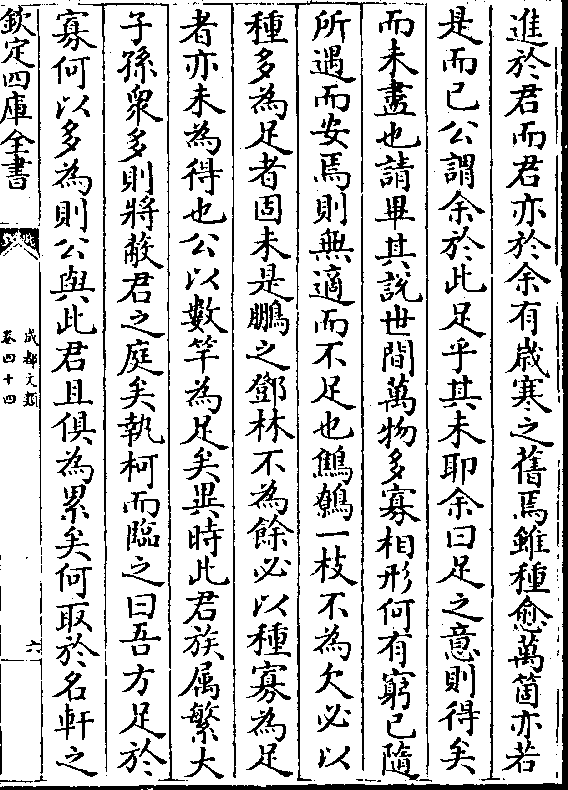 進於君而君亦於余有歲寒之舊焉雖種愈萬箇亦若
是而已公謂余於此足乎其未耶余曰足之意則得矣
而未盡也請畢其說世間萬物多寡相形何有窮已隨
所遇而安焉則無適而不足也鷦鷯一枝不為欠必以
種多為足者固未是鵬之鄧林不為餘必以種寡為足
者亦未為得也公以數竿為足矣異時此君族属繁大
子孫衆多則將敝君之庭矣執柯而臨之曰吾方足於
寡何以多為則公與此君且俱為累矣何取於名軒之
欽定四庫全書
成都文類
卷四十四
六